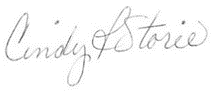 Cindy L Storie